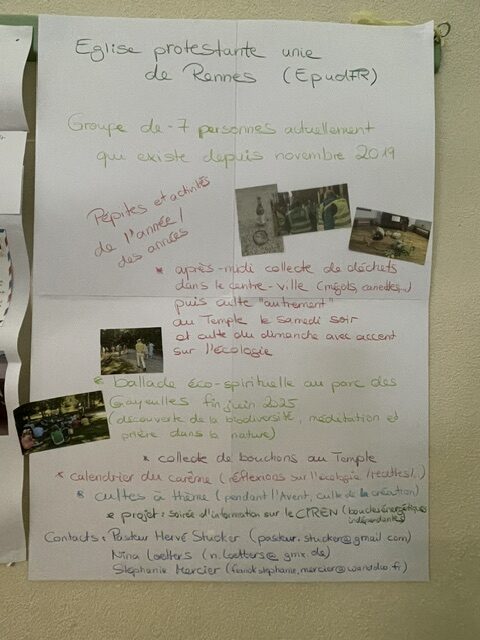 Eglise protestante unie
de Rennes (EpudFR)
Groupe de -7 personnes actuellement
qui existe depuis novembre 2019
Pépites et activités
de l'année /
des années
* après-midi collecte de déchets
dans le centre-ville (mégots, canettes...)
puis culte "autrement"
au Temple le samedi soir
et culte du dimanche avec accent
sur l'écologie
* ballade éco-spirituelle au parc des
Gayeulles fin juin 2025
(découverte de la biodiversité, méditation et
prière dans la nature)
* collecte de bouchons au Temple
* calendrier du carême (réflexions sur l'écologie/recettes/..)
* cultes à thème (pendant l'Avent, culte de la création)
* projet: soirée d'information sur le CIREN (boucles énergétiques
indépendantes)
Contacts: Pasteur Hervé Stucker (pasteur.stucker@gmail.com)
Nina Loetters (n.loetters@gmx.de)
Stéphanie Mercier (franckstephanie.mercier@wanadoo.fr)